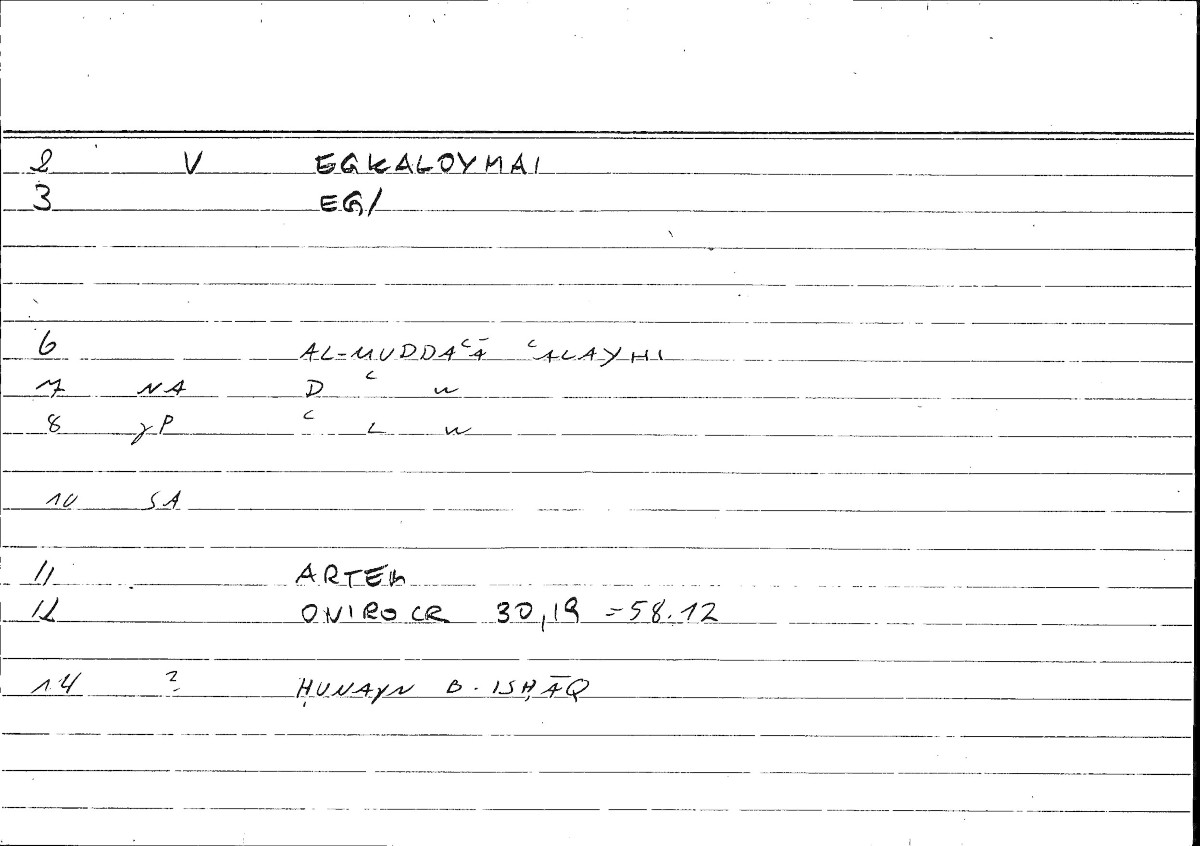 2 V EGKALOYMAI
3 EG/
6 AL-MUDDAʿĀ ʿALAYHI
7 NA D ʿ W
8 ʿ L W
10 SA
11 ARTEM
12 ONIROCR 30,19 =58.12
14 ? ḤUNAYN B. ISḤĀQ